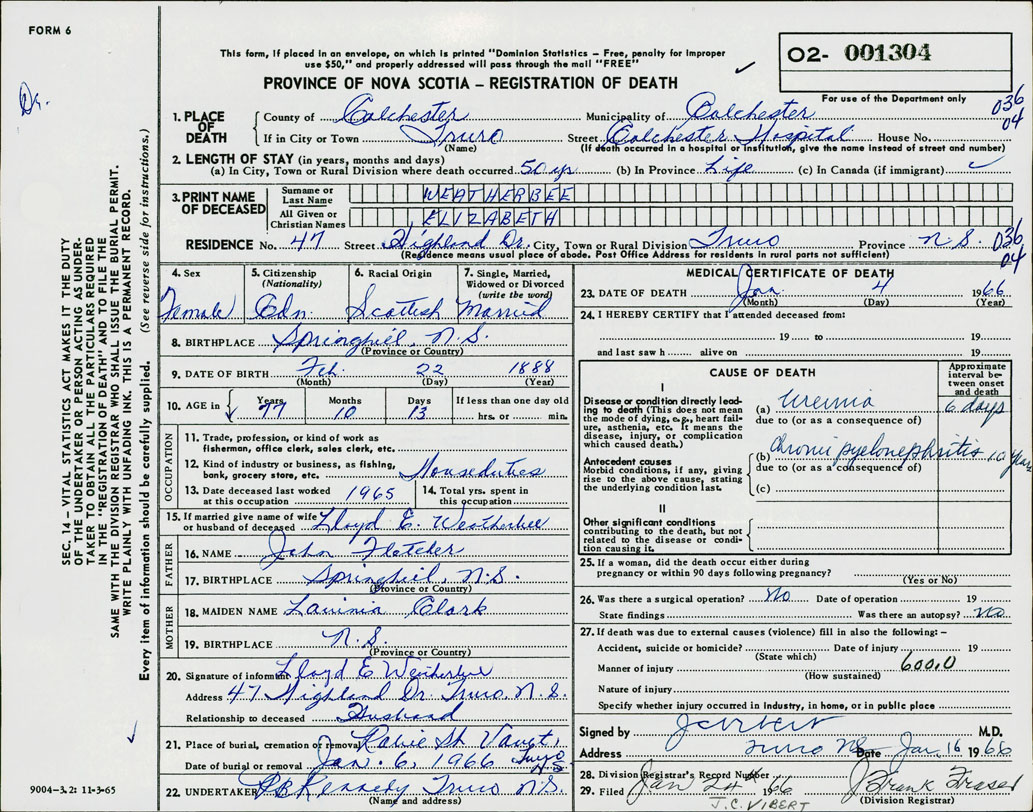 FORM 6
This form, if placed in an envelope, on which is printed "Dominion Statistics – Free, penalty for improper
use $50," and properly addressed will pass through the mail "FREE"
O2- 001304
PROVINCE OF NOVA SCOTIA – REGISTRATION OF DEATH
For use of the Department only
Dr.
036
04
1. PLACE OF DEATH
County of Colchester Municipality of Colchester
If in City or Town Truro Street Colchester Hospital House No.
(Name) (If death occurred in a hospital or institution, give the name instead of street and number)
2. LENGTH OF STAY (in years, months and days)
(a) In City, Town or Rural Division where death occurred 50 yrs (b) In Province Life (c) In Canada (if immigrant)
3. PRINT NAME OF DECEASED
Surname or Last Name WEATHERBEE
All Given or Christian Names ELIZABETH
RESIDENCE No. 47 Street Highland Dr. City, Town or Rural Division Truro Province N.S.
036
04
(Residence means usual place of abode. Post Office Address for residents in rural parts not sufficient)
SEC. 14 – VITAL STATISTICS ACT MAKES IT THE DUTY
OF THE UNDERTAKER OR PERSON ACTING AS UNDER-
TAKER TO OBTAIN ALL THE PARTICULARS REQUIRED
IN THE "REGISTRATION OF DEATH" AND TO FILE THE
SAME WITH THE DIVISION REGISTRAR WHO SHALL ISSUE THE BURIAL PERMIT.
WRITE PLAINLY WITH UNFADING INK. THIS IS A PERMANENT RECORD.
Every item of information should be carefully supplied. (See reverse side for instructions.)
4. Sex Female
5. Citizenship (Nationality) Cdn.
6. Racial Origin Scottish
7. Single, Married, Widowed or Divorced (write the word) Married
8. BIRTHPLACE Springhill, N.S.
(Province or Country)
9. DATE OF BIRTH Feb. 22 1888
(Month) (Day) (Year)
10. AGE in Years 77 Months 10 Days 13 If less than one day old hrs. or min.
OCCUPATION
11. Trade, profession, or kind of work as
fisherman, office clerk, sales clerk, etc.
12. Kind of industry or business, as fishing,
bank, grocery store, etc. Houseduties
13. Date deceased last worked at this occupation 1965 14. Total yrs. spent in this occupation
15. If married give name of wife
or husband of deceased Lloyd E. Weatherbee
FATHER
16. NAME John Fletcher
17. BIRTHPLACE Springhill, N.S.
(Province or Country)
MOTHER
18. MAIDEN NAME Lavinia Clark
19. BIRTHPLACE N.S.
(Province or Country)
20. Signature of informant Lloyd E Weatherbee
Address 47 Highland Dr. Truro N.S.
Relationship to deceased Husband
21. Place of burial, cremation or removal Robie St. Vault,
Date of burial or removal Jan. 6, 1966 Truro N.S.
22. UNDERTAKER Kennedy Truro N.S.
(Name and address)
9004-3.2: 11-3-65
MEDICAL CERTIFICATE OF DEATH
23. DATE OF DEATH Jan. 4 1966
(Month) (Day) (Year)
24. I HEREBY CERTIFY that I attended deceased from:
19 to 19
and last saw h alive on 19
CAUSE OF DEATH
Approximate interval between onset and death
I
Disease or condition directly lead-
ing to death (This does not mean
the mode of dying, e.g., heart fail-
ure, asthenia, etc. It means the
disease, injury, or complication
which caused death.)
(a) Uremia 6 days
due to (or as a consequence of)
Antecedent causes
Morbid conditions, if any, giving
rise to the above cause, stating
the underlying condition last.
(b) Chronic pyelonephritis 10 years
due to (or as a consequence of)
(c)
II
Other significant conditions
contributing to the death, but not
related to the disease or condi-
tion causing it.
25. If a woman, did the death occur either during
pregnancy or within 90 days following pregnancy?
(Yes or No)
26. Was there a surgical operation? No Date of operation 19
State findings Was there an autopsy? No
27. If death was due to external causes (violence) fill in also the following: –
Accident, suicide or homicide? Date of injury 19
(State which)
Manner of injury 600.0
(How sustained)
Nature of injury
Specify whether injury occurred in industry, in home, or in public place
Signed by JCVibert M.D.
Address Truro NS Date Jan 16 1966
28. Division Registrar's Record Number
29. Filed Jan 24 1966 J. Frank Fraser
J.C. VIBERT (Division Registrar)